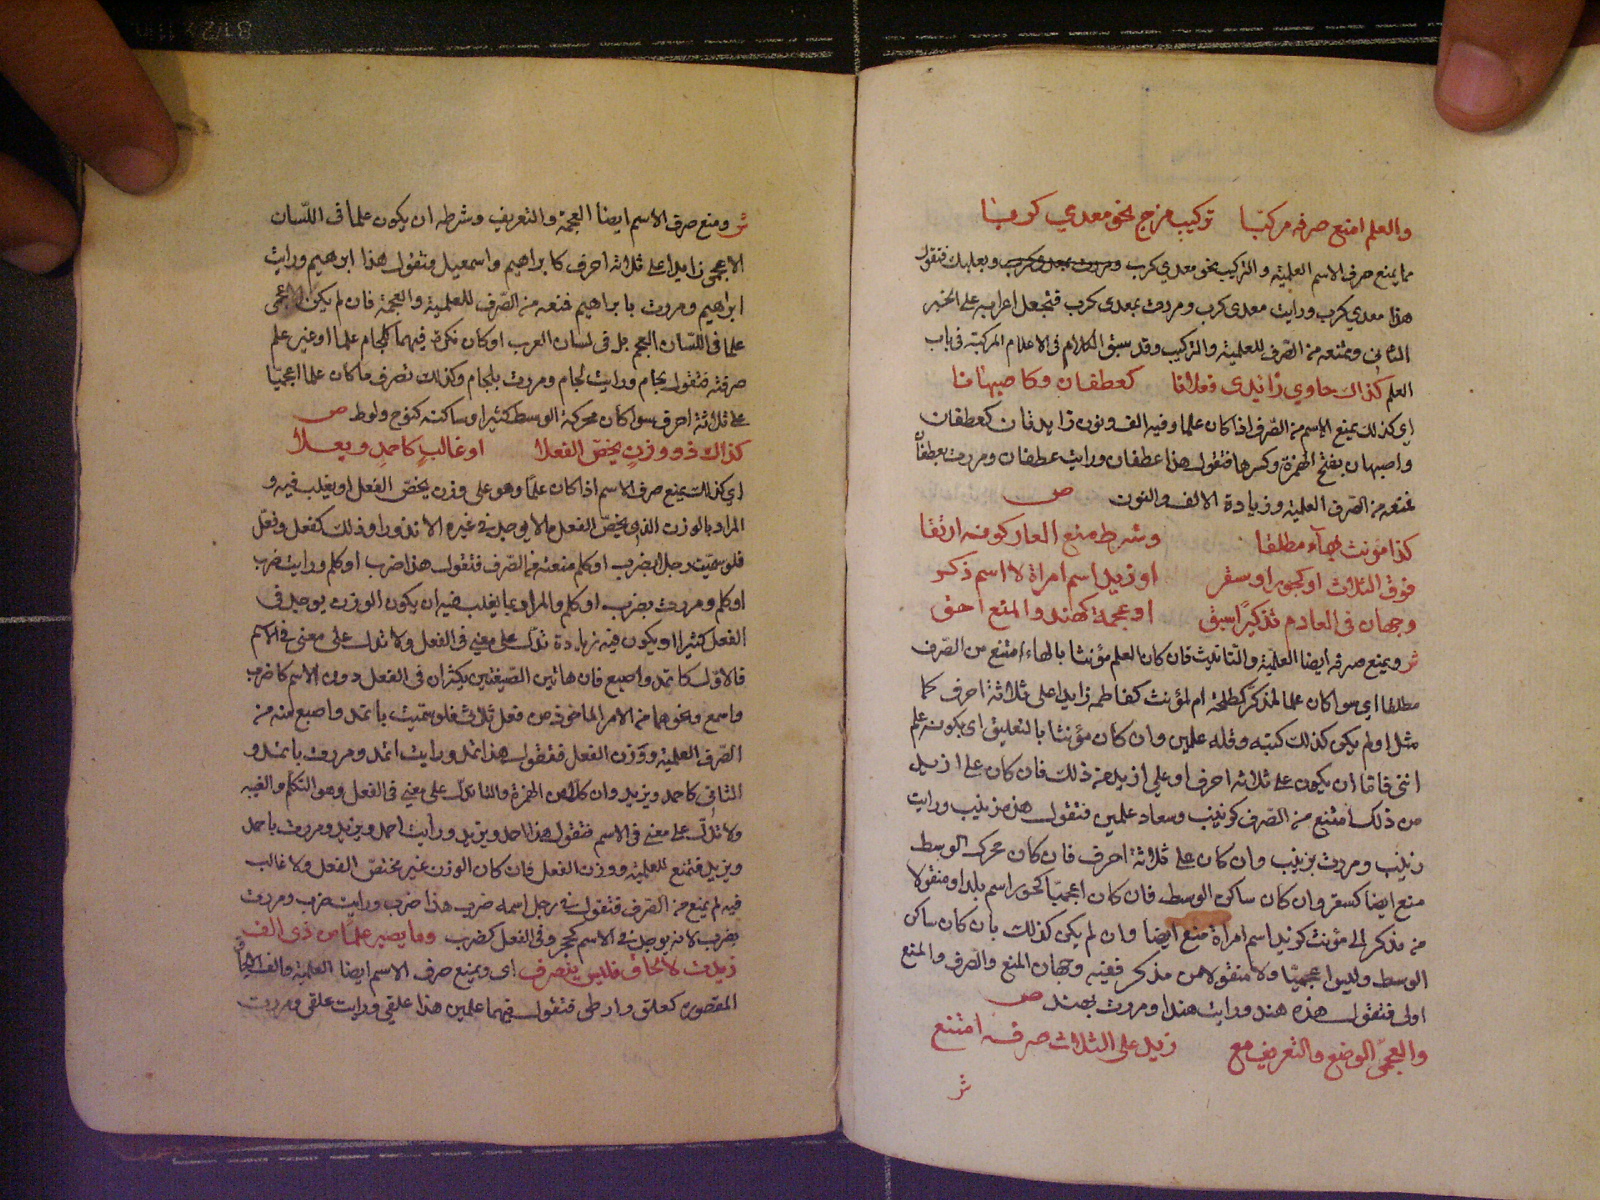 والعلم امنع صرفه مركبا تركيب مزج نحو معدي كربا
مما يمنع صرف الاسم العلمية والتركيب نحو معدي كرب وبعلبك فتقول
هذا معدي كرب ورايت معدي كرب ومررت بمعدي كرب فتجعل اعرابه على الجزء
الثاني وتمنعه من الصرف للعلمية والتركيب وقد سبق الكلام في الاعلام المركبة في باب
العلم كذاك حاوي زائدي فعلانا كغطفان وكاصبهانا
اي كذلك يمنع الاسم من الصرف اذا كان علما وفيه الف ونون زايدتان كغطفان
واصبهان بفتح الهمزة وكسرها فتقول هذا غطفان ورايت غطفان ومررت بغطفان
تمنعه من الصرف العلمية وزيادة الالف والنون ص
كذا مؤنث بهاء مطلقا وشرط منع العار كونه ارتقا
فوق الثلاث او كجور او سقر او زيد اسم امراة لا اسم ذكر
وجهان في العادم تذكيرًا سبق وعجمة كهند والمنع احق
ش ويمنع صرفه ايضا العلمية والتانيث فان كان العلم مؤنثا بالهاء امتنع من الصرف
مطلقا اي سوا كان علما لمذكر كطلحة ام لمؤنث كفاطمة زايدا على ثلاثة احرف كما
مثل او لم يكن كذلك كثبة وقلة علمين وان كان مؤنثا بالتعليق اي بكونه علم
انثى فاما ان يكون على ثلاثة احرف او على ازيد من ذلك فان كان على ازيد
من ذلك امتنع من الصرف كزينب وسعاد علمين فتقول هذه زينب ورايت
زينب ومررت بزينب وان كان على ثلاثة احرف فان كان محرك الوسط
منع ايضا كسقر وان كان ساكن الوسط فان كان اعجميا كجور اسم بلد او منقولا
من مذكر الى مؤنث كزيد اسم امراة منع ايضا وان لم يكن كذلك بان كان ساكن
الوسط وليس اعجميا ولا منقولا من مذكر ففيه وجهان المنع والصرف والمنع
اولى فتقول هذه هند ورايت هندا ومررت بهند ص
والعجمي الوضع والتعريف مع زيد على الثلاث صرفه امتنع
ش
ش ومنع صرف الاسم ايضا العجمة والتعريف وشرطه ان يكون علما في اللسان
الاعجمي زايدا على ثلاثة احرف كابراهيم واسمعيل فتقول هذا ابرهيم ورايت
ابراهيم ومررت بابراهيم فتمنعه من الصرف للعلمية والعجمة فان لم يكن الاعجمي
علما في اللسان العجم بل في لسان العرب او كان نكرة فيهما كلجام علما او غير علم
صرفته فتقول لجام ورايت لجام ومررت بلجام وكذلك تصرف ما كان علما اعجميا
على ثلاثة احرف سوا كان محرك الوسط كشتر او ساكنه كنوح ولوط ص
كذاك ذو وزن يخص الفعلا او غالب كاحمد ويعلا
اي كذلك يمنع صرف الاسم اذا كان علما وهو على وزن يخص الفعل او يغلب فيه و
المراد بالوزن الذي يخص الفعل ما لا يوجد في غيره الا نذورا وذلك كفعل وفعل
فلو سميت رجلا بضرب او كلم منعته من الصرف فتقول هذا ضرب او كلم ورايت ضرب
او كلم ومررت بضرب او كلم والمراد بما يغلب فيه ان يكون الوزن يوجد في
الفعل كثيرا او يكون فيه زيادة تدل على معنى في الفعل ولا تدل على معنى في الاسم
فالاول كاثمد واصبع فان هاتين الصيغتين يكثران في الفعل دون الاسم كاضرب
واسمع ونحوهما من الامر الماخوذ من فعل ثلاثي فلو سميت باثمد واصبع منعته من
الصرف العلمية ووزن الفعل فتقول هذا اثمد ورايت اثمد ومررت باثمد و
الثاني كاحمد ويزيد وان كلا من الهمزة والتا يدل على معنى في الفعل وهو التكلم والغيبه
ولا تدل على معنى في الاسم فتقول هذا احمد ويزيد ورايت احمد ويزيد ومررت باحمد
ويزيد فتمنع للعلمية ووزن الفعل فان كان الوزن غير مختص الفعل ولا غالب
فيه لم يمنع من الصرف فتقول في رجل اسمه ضرب هذا ضرب ورايت ضرب ومررت
بضرب لانه يوجد في الاسم كحجر وفي الفعل كضرب وما يصير علما من ذي الف
زيدت لالحاق فليس ينصرف اي ويمنع صرف الاسم ايضا العلمية والف الالحاق
المقصورة كعلقى وارطى فتقول فيهما علمين هذا علقى ورايت علقى ومررت